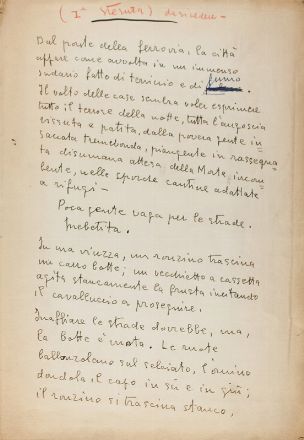 (Iª stesura) da rivedere -
Dal ponte della ferrovia, la città
appare come avvolta in un immenso
sudario fatto di terriccio e di fumo
Il volto delle case sembra voler esprimere
tutto il terrore della notte, tutta l'angoscia
vissuta e patita, dalla povera gente in=
saccata tremebonda, piangente in rassegna=
ta disumana attesa della Morte, incom=
bente, nelle sporche cantine adattate
a rifugi -
Poca gente vaga per le strade.
Inebetita.
In una viuzza, un ronzino trascina
un carro botte; un vecchietto a cassetta
agita stancamente la frusta incitando
il cavalluccio a proseguire.
Inaffiare le strade dovrebbe, ma,
la botte è vuota. Le ruote
ballonzolano sul selciato, l'omino
dondola il capo in su e in giù;
il ronzino si trascina stanco,